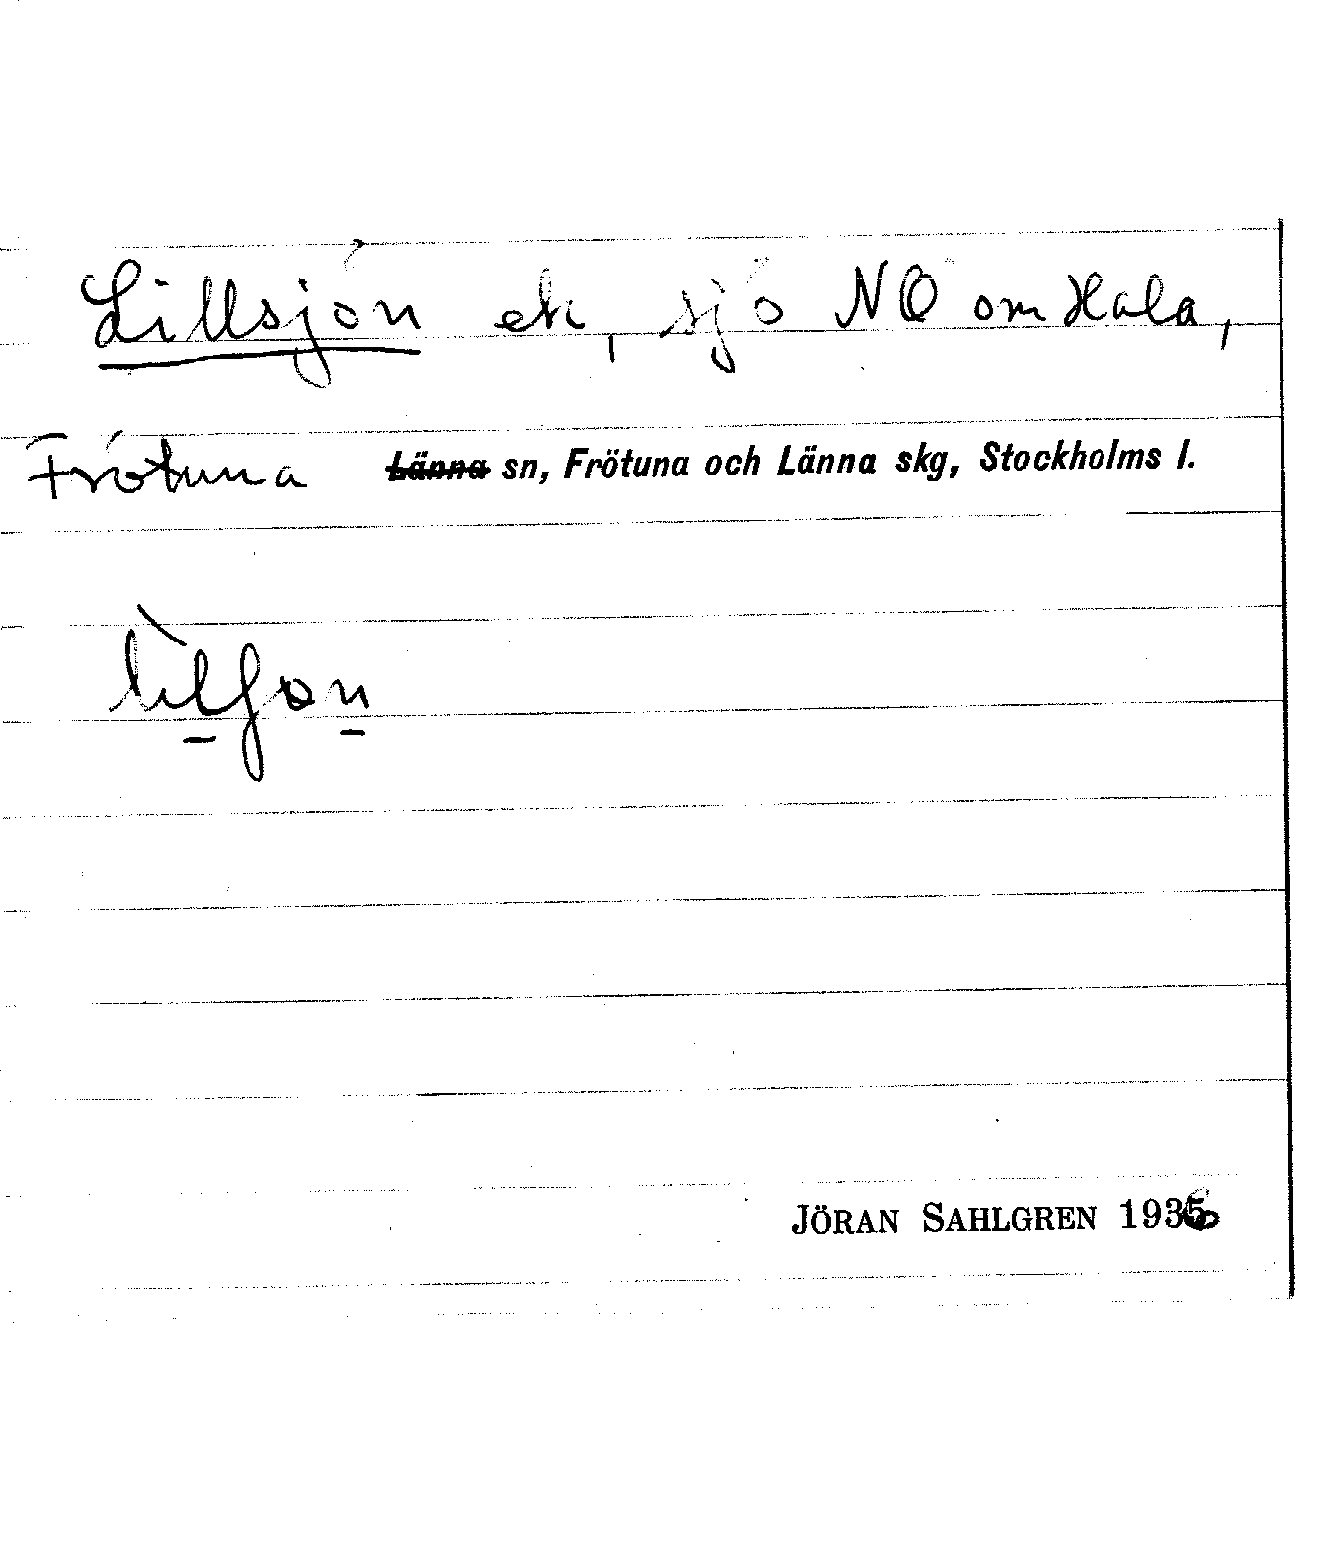 Lillsjön ek, sjö NO om Hala,
Frötuna Länna sn, Frötuna och Länna skg, Stockholms l.
JÖRAN SAHLGREN 1936